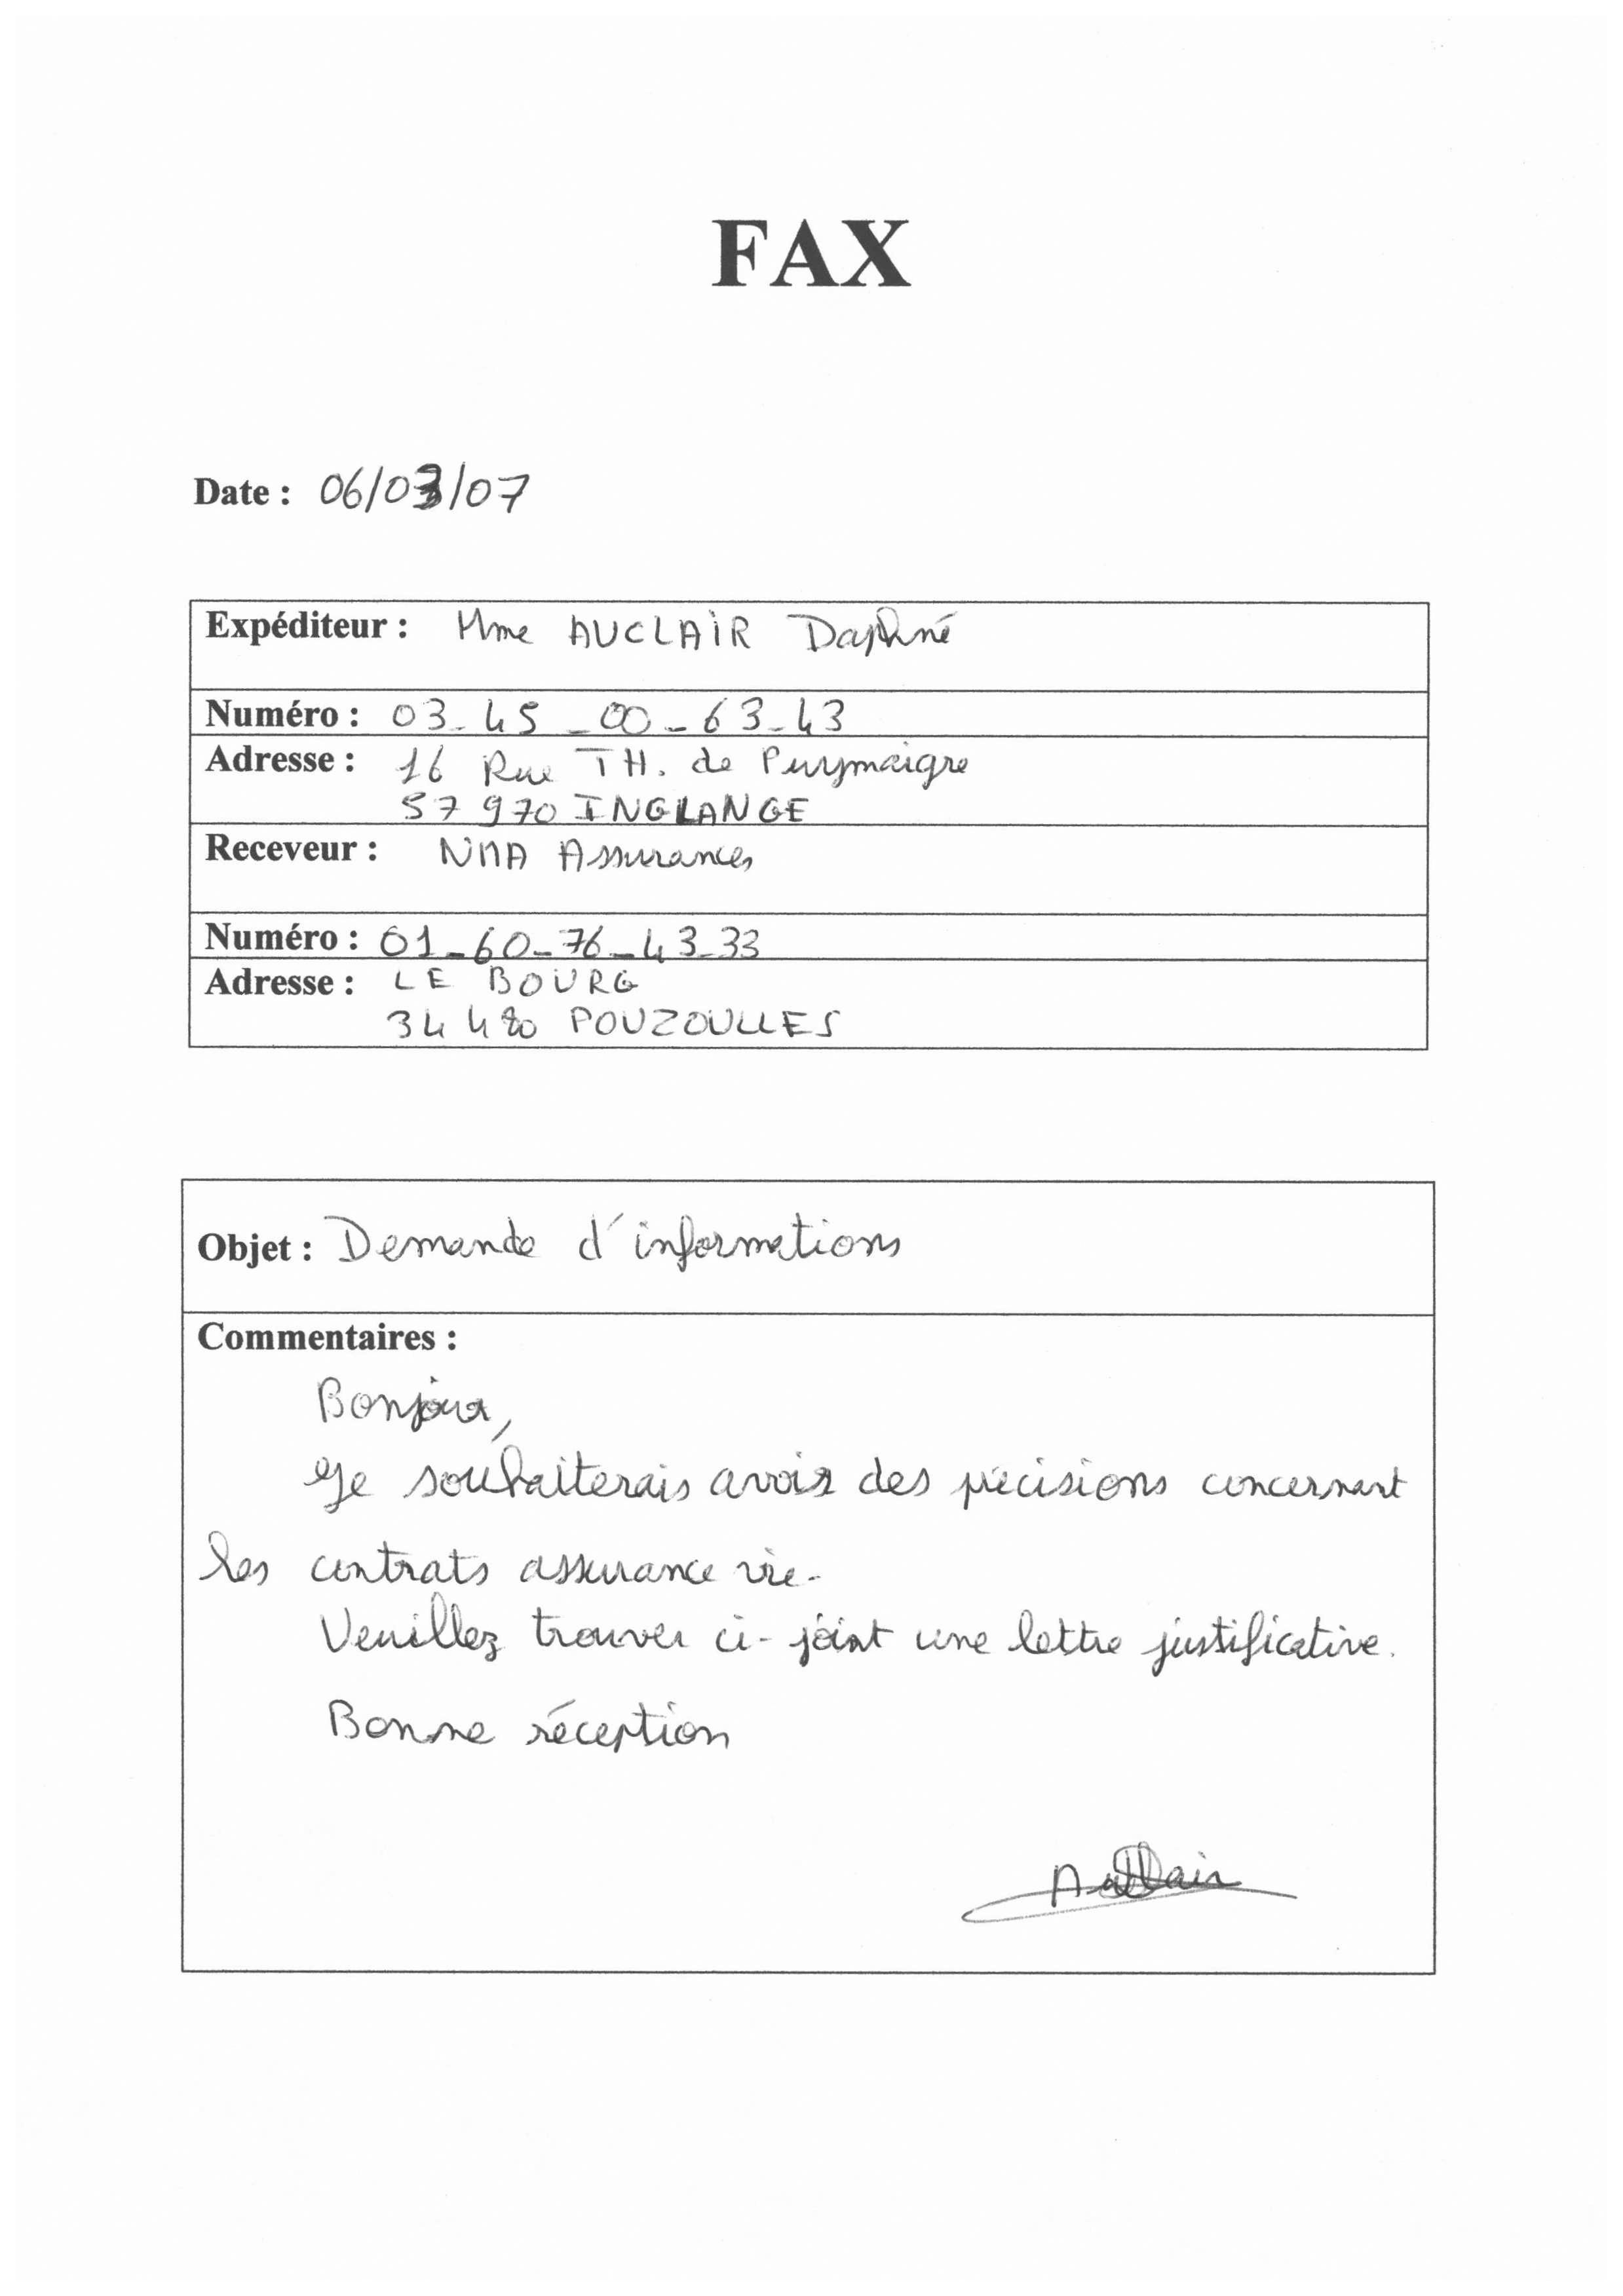 FAX
Date : 06/03/07
Expéditeur : Mme AUCLAIR Daphné
Numéro : 03-45-00-63-43
Adresse : 16 Rue TH. de Puymaigre
57 970 INGLANGE
Receveur : NMA Assurances
Numéro : 01-60-76-43-33
Adresse : LE BOURG
34 480 POUZOULLES
Objet : Demande d'informations
Commentaires :
Bonjour,
Je souhaiterais avoir des précisions concernant
les contrats assurance vie.
Veuillez trouver ci-joint une lettre justificative.
Bonne réception
Auclair